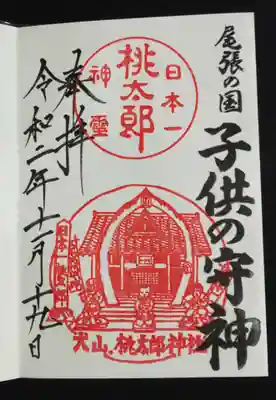 尾張の国
子供の守神
日本一
桃太郎
神靈
犬山、桃太郎神社
奉拝
令和二年十一月十九日